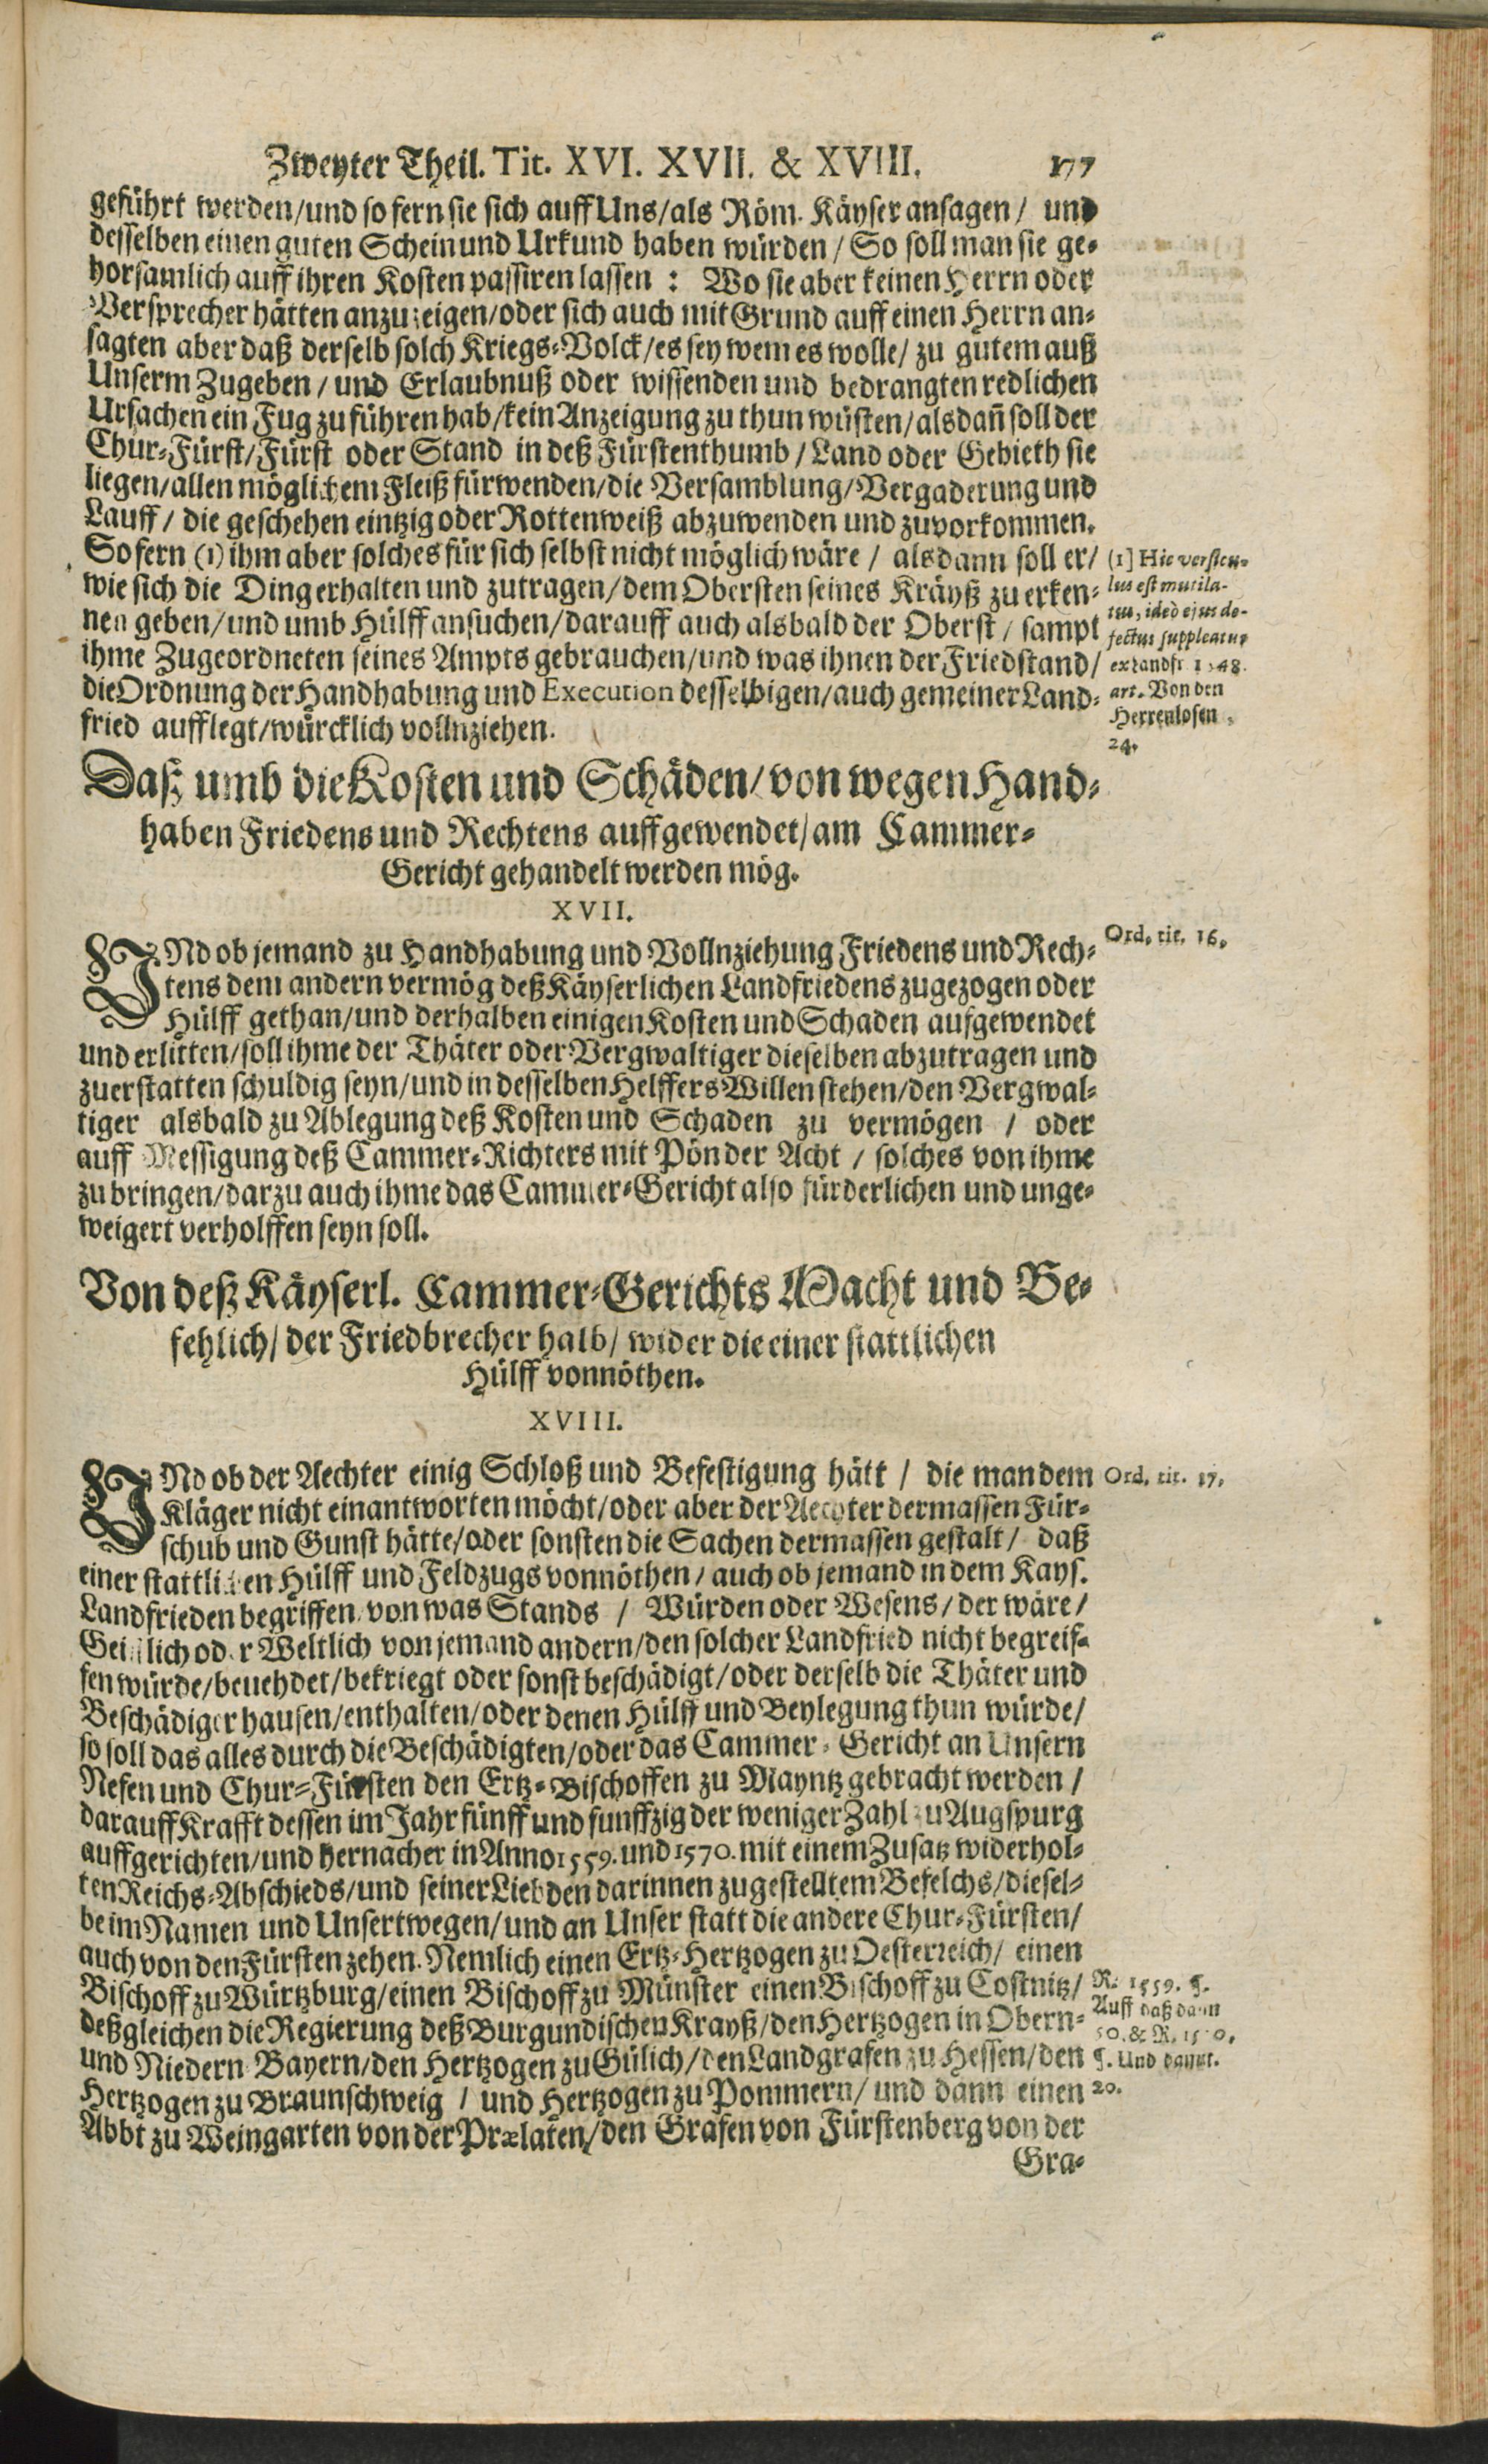 Zweyter Theil. Tit. XVI. XVII. & XVIII. 177
geführt werden/und so fern sie sich auff Uns/als Röm. Käyser ansagen/ und
desselben einen guten Schein und Urkund haben würden/ So soll man sie ge-
horsamlich auff ihren Kosten passiren lassen : Wo sie aber keinen Herrn oder
Versprecher hätten anzuzeigen/oder sich auch mit Grund auff einen Herrn an-
sagten aber daß derselb solch Kriegs-Volck/es sey wem es wolle/ zu gutem auß
Unserm Zugeben/ und Erlaubnuß oder wissenden und bedrangten redlichen
Ursachen ein Fug zu führen hab/kein Anzeigung zu thun wüsten/alsdañ soll der
Chur-Fürst/Fürst oder Stand in deß Fürstenthumb/Land oder Gebieth sie
liegen/allen möglichem Fleiß fürwenden/die Versamblung/Vergaderung und
Lauff/ die geschehen eintzig oder Rottenweiß abzuwenden und zuvorkommen.
So fern (1) ihm aber solches für sich selbst nicht möglich wäre / alsdann soll er/
wie sich die Ding erhalten und zutragen/dem Obersten seines Kräyß zu erken-
nen geben/und umb Hülff ansuchen/darauff auch alsbald der Oberst/ sampt
ihme Zugeordneten seines Ampts gebrauchen/und was ihnen der Friedstand/
die Ordnung der Handhabung und Execution desselbigen/auch gemeiner Land-
fried aufflegt/würcklich vollnziehen.
(1] Hic versicu-
lus est mutila-
tus, ideò ejus de-
fectus suppleatur
ex Landfr. 1548.
art. Von den
Herrenlosen
24.
Daß umb die Kosten und Schäden/von wegen Hand-
haben Friedens und Rechtens auffgewendet/am Cammer-
Gericht gehandelt werden mög.
XVII.
UNd ob jemand zu Handhabung und Vollnziehung Friedens und Rech-
tens dem andern vermög deß Käyserlichen Landfriedens zugezogen oder
Hülff gethan/und derhalben einigen Kosten und Schaden aufgewendet
und erlitten/soll ihme der Thäter oder Vergwaltiger dieselben abzutragen und
zuerstatten schuldig seyn/und in desselben Helffers Willen stehen/den Vergwal-
tiger alsbald zu Ablegung deß Kosten und Schaden zu vermögen / oder
auff Messigung deß Cammer-Richters mit Pön der Acht / solches von ihme
zu bringen/darzu auch ihme das Cammer-Gericht also fürderlichen und unge-
weigert verholffen seyn soll.
Ord. tit. 16.
Von deß Käyserl. Cammer-Gerichts Macht und Be-
fehlich/ der Friedbrecher halb/ wider die einer stattlichen
Hülff vonnöthen.
XVIII.
UNd ob der Aechter einig Schloß und Befestigung hätt / die man dem
Kläger nicht einantworten möcht/oder aber der Aechter dermassen Für-
schub und Gunst hätte/oder sonsten die Sachen dermassen gestalt/ daß
einer stattlichen Hülff und Feldzugs vonnöthen/ auch ob jemand in dem Kays.
Landfrieden begriffen, von was Stands / Würden oder Wesens/ der wäre/
Geistlich oder Weltlich von jemand andern/den solcher Landfried nicht begreif-
fen würde/bevehdet/bekriegt oder sonst beschädigt/oder derselb die Thäter und
Beschädiger hausen/enthalten/oder denen Hülff und Beylegung thun würde/
so soll das alles durch die Beschädigten/oder das Cammer-Gericht an Unsern
Nefen und Chur-Fürsten den Ertz-Bischoffen zu Mayntz gebracht werden /
darauff Krafft dessen im Jahr fünff und funffzig der weniger Zahl zu Augspurg
auffgerichten/und hernacher in Anno 1559. und 1570. mit einem Zusatz widerhol-
ten Reichs-Abschieds/und seiner Liebden darinnen zugestelltem Befelchs/diesel-
be im Namen und Unsertwegen/und an Unser statt die andere Chur-Fürsten/
auch von den Fürsten zehen. Nemlich einen Ertz-Hertzogen zu Oesterreich/ einen
Bischoff zu Würtzburg/einen Bischoff zu Münster einen Bischoff zu Costnitz/
deßgleichen die Regierung deß Burgundischen Krayß/den Hertzogen in Obern-
und Niedern Bayern/den Hertzogen zu Gülich/den Landgrafen zu Hessen/den
Hertzogen zu Braunschweig / und Hertzogen zu Pommern/ und dann einen
Abbt zu Weingarten von der Prælaten/den Grafen von Fürstenberg von der
Gra-
Ord. tit. 17.
R. 1559. §.
Auff daß dann
50. & R. 1570.
§. Und damit.
20.